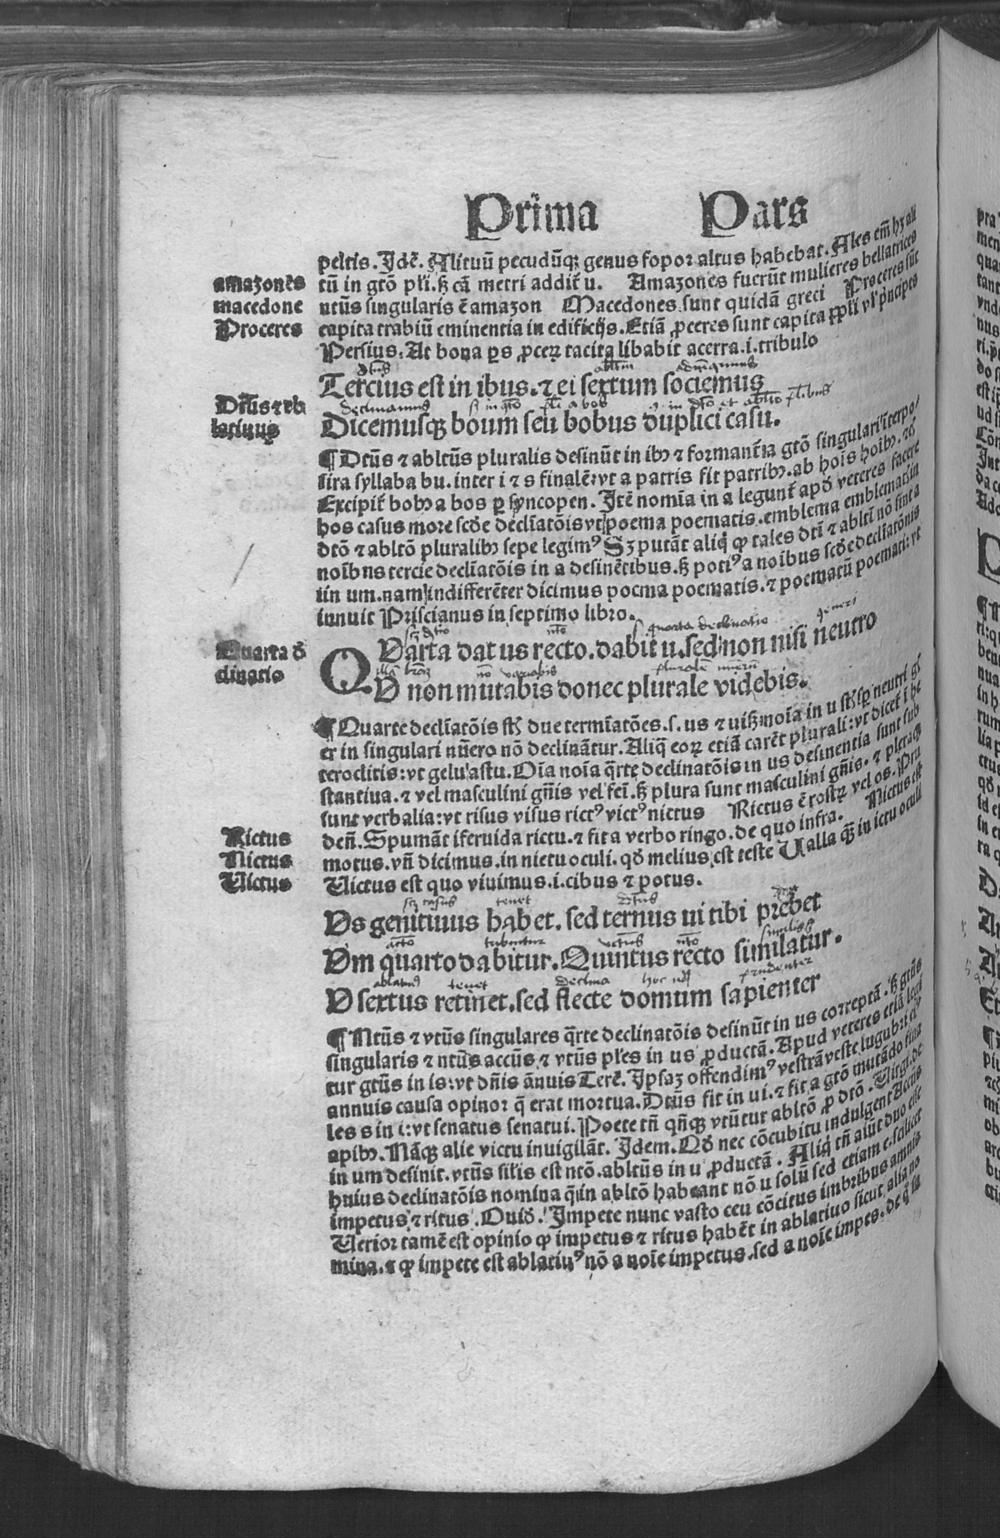 Prima Pars
peltis. Idē. Alituū pecudūqꝫ genus sopor altus habebat. Ales em̄ hꝫ ali
amazones
tū in gtō pli. sꝫ cā metri addit̄ u. Amazones fuerūt mulieres bellatrices
macedone
ntūs singularis ē amazon Macedones sunt quidā greci Proceres sūt
Proceres
capita trabiū eminentia in edificijs. Etiā ꝓceres sunt capita ppli vl' pncipes
Persius. At bona ꝑs ꝓceꝝ tacita libabit acerra .i. tribulo
Tercius est in ibus. ⁊ ei sextum sociemus
Dtūs ⁊ ab
latiuus
Dicemusqꝫ boum seu bobus duplici casu.
¶ Dtūs ⁊ abltūs pluralis desinūt in ibꝫ ⁊ formant̄ a gtō singulari īterpo
sita syllaba bu. inter i ⁊ s finalē: vt a patris fit patribꝫ. ab hoīs hoībꝫ. ⁊c̄
Excipit̄ bobꝫ a bos ꝑ syncopen. Itē nomīa in a legunt̄ apd' veteres facere
hos casus more scd'e declīatōis vt poema poematis. emblema emblematis in
dtō ⁊ abltō pluralibꝫ sepe legimꝰ Sꝫ putāt aliq̄ ꝙ tales dtī ⁊ abltī nō sint a
noībus tercie declīatōis in a desinētibus. sꝫ potiꝰ a noībus scd'e declīatōnis
in um. nam indifferēter dicimus poema poematis. ⁊ poematū poemati: vt
innuit Priscianus in septimo libro.
Quarta d'
clinatio
QVarta dat us recto. dabit u. sed non nisi neutro
V non mutabis donec plurale videbis.
¶ Quarte declīatōis st̄ due termīatōes .s. us ⁊ u
er in singulari nūero nō declinātur. Aliq̄ eoꝝ etiā carēt plurali: vt dicet̄ ī he
teroclitis: vt gelu astu. Oīa noīa q̄rte declinatōis in us desinentia sunt sub
stantiua. ⁊ vel masculini gn̄is vel fei. sꝫ plura sunt masculini gn̄is. ⁊ pleraqꝫ
sunt verbalia: vt risus visus rictꝰ victꝰ nictus Rictus ē rostꝝ vel os. Pru
Rictus
den̄. Spumāt iferuida rictu. ⁊ fit a verbo ringo. de quo infra. Nictus est
Nictus
motus. vn̄ dicimus. in nictu oculi. qd' melius est teste Ualla qꝫ in ictu oculi
Uictus
Uictus est quo viuimus .i. cibus ⁊ potus.
Vs genitiuus habet. sed ternus ui tibi prebet
Vm quarto dabitur. Quintus recto similatur.
V sextus retinet. sed flecte domum sapienter
¶ Ntūs ⁊ vtūs singulares q̄rte declinatōis desinūt in us correptā. sꝫ gtūs
singularis ⁊ ntūs accūs ⁊ vtūs pl'es in us ꝓductā. Apud veteres etiā legi
tur gtūs in is: vt dn̄is ānuis Terē. Ipsaꝫ offendimꝰ vestrā veste lugubri eiꝰ
annuis causa opinor q̄ erat mortua. Dtūs fit in ui. ⁊ fit a gtō mutādo fina
les s in i: vt senatus senatui. Poete tn̄ qn̄qꝫ vtūtur abltō ꝓ dtō. Uirgi. de
apibꝫ. Nāqꝫ alie victu inuigilāt. Idem. Qd' nec cōcubitu indulgent Accūs
in um desinit. vtūs sil'is est ntō. abltūs in u ꝓductā. Aliq̄ tn̄ aiūt duo esse
huius declinatōis nomina q̄ in abltō habeant nō u solū sed etiam e. scilicet
impetus ⁊ ritus. Ouid. Impete nunc vasto ceu cōcitus imbribus amnis
Uerior tamē est opinio ꝙ impetus ⁊ ritus habēt in ablatiuo sicut alia no
mina. ⁊ ꝙ impete est ablatiuꝰ nō a noīe impetus. sed a noīe impes. de q̄